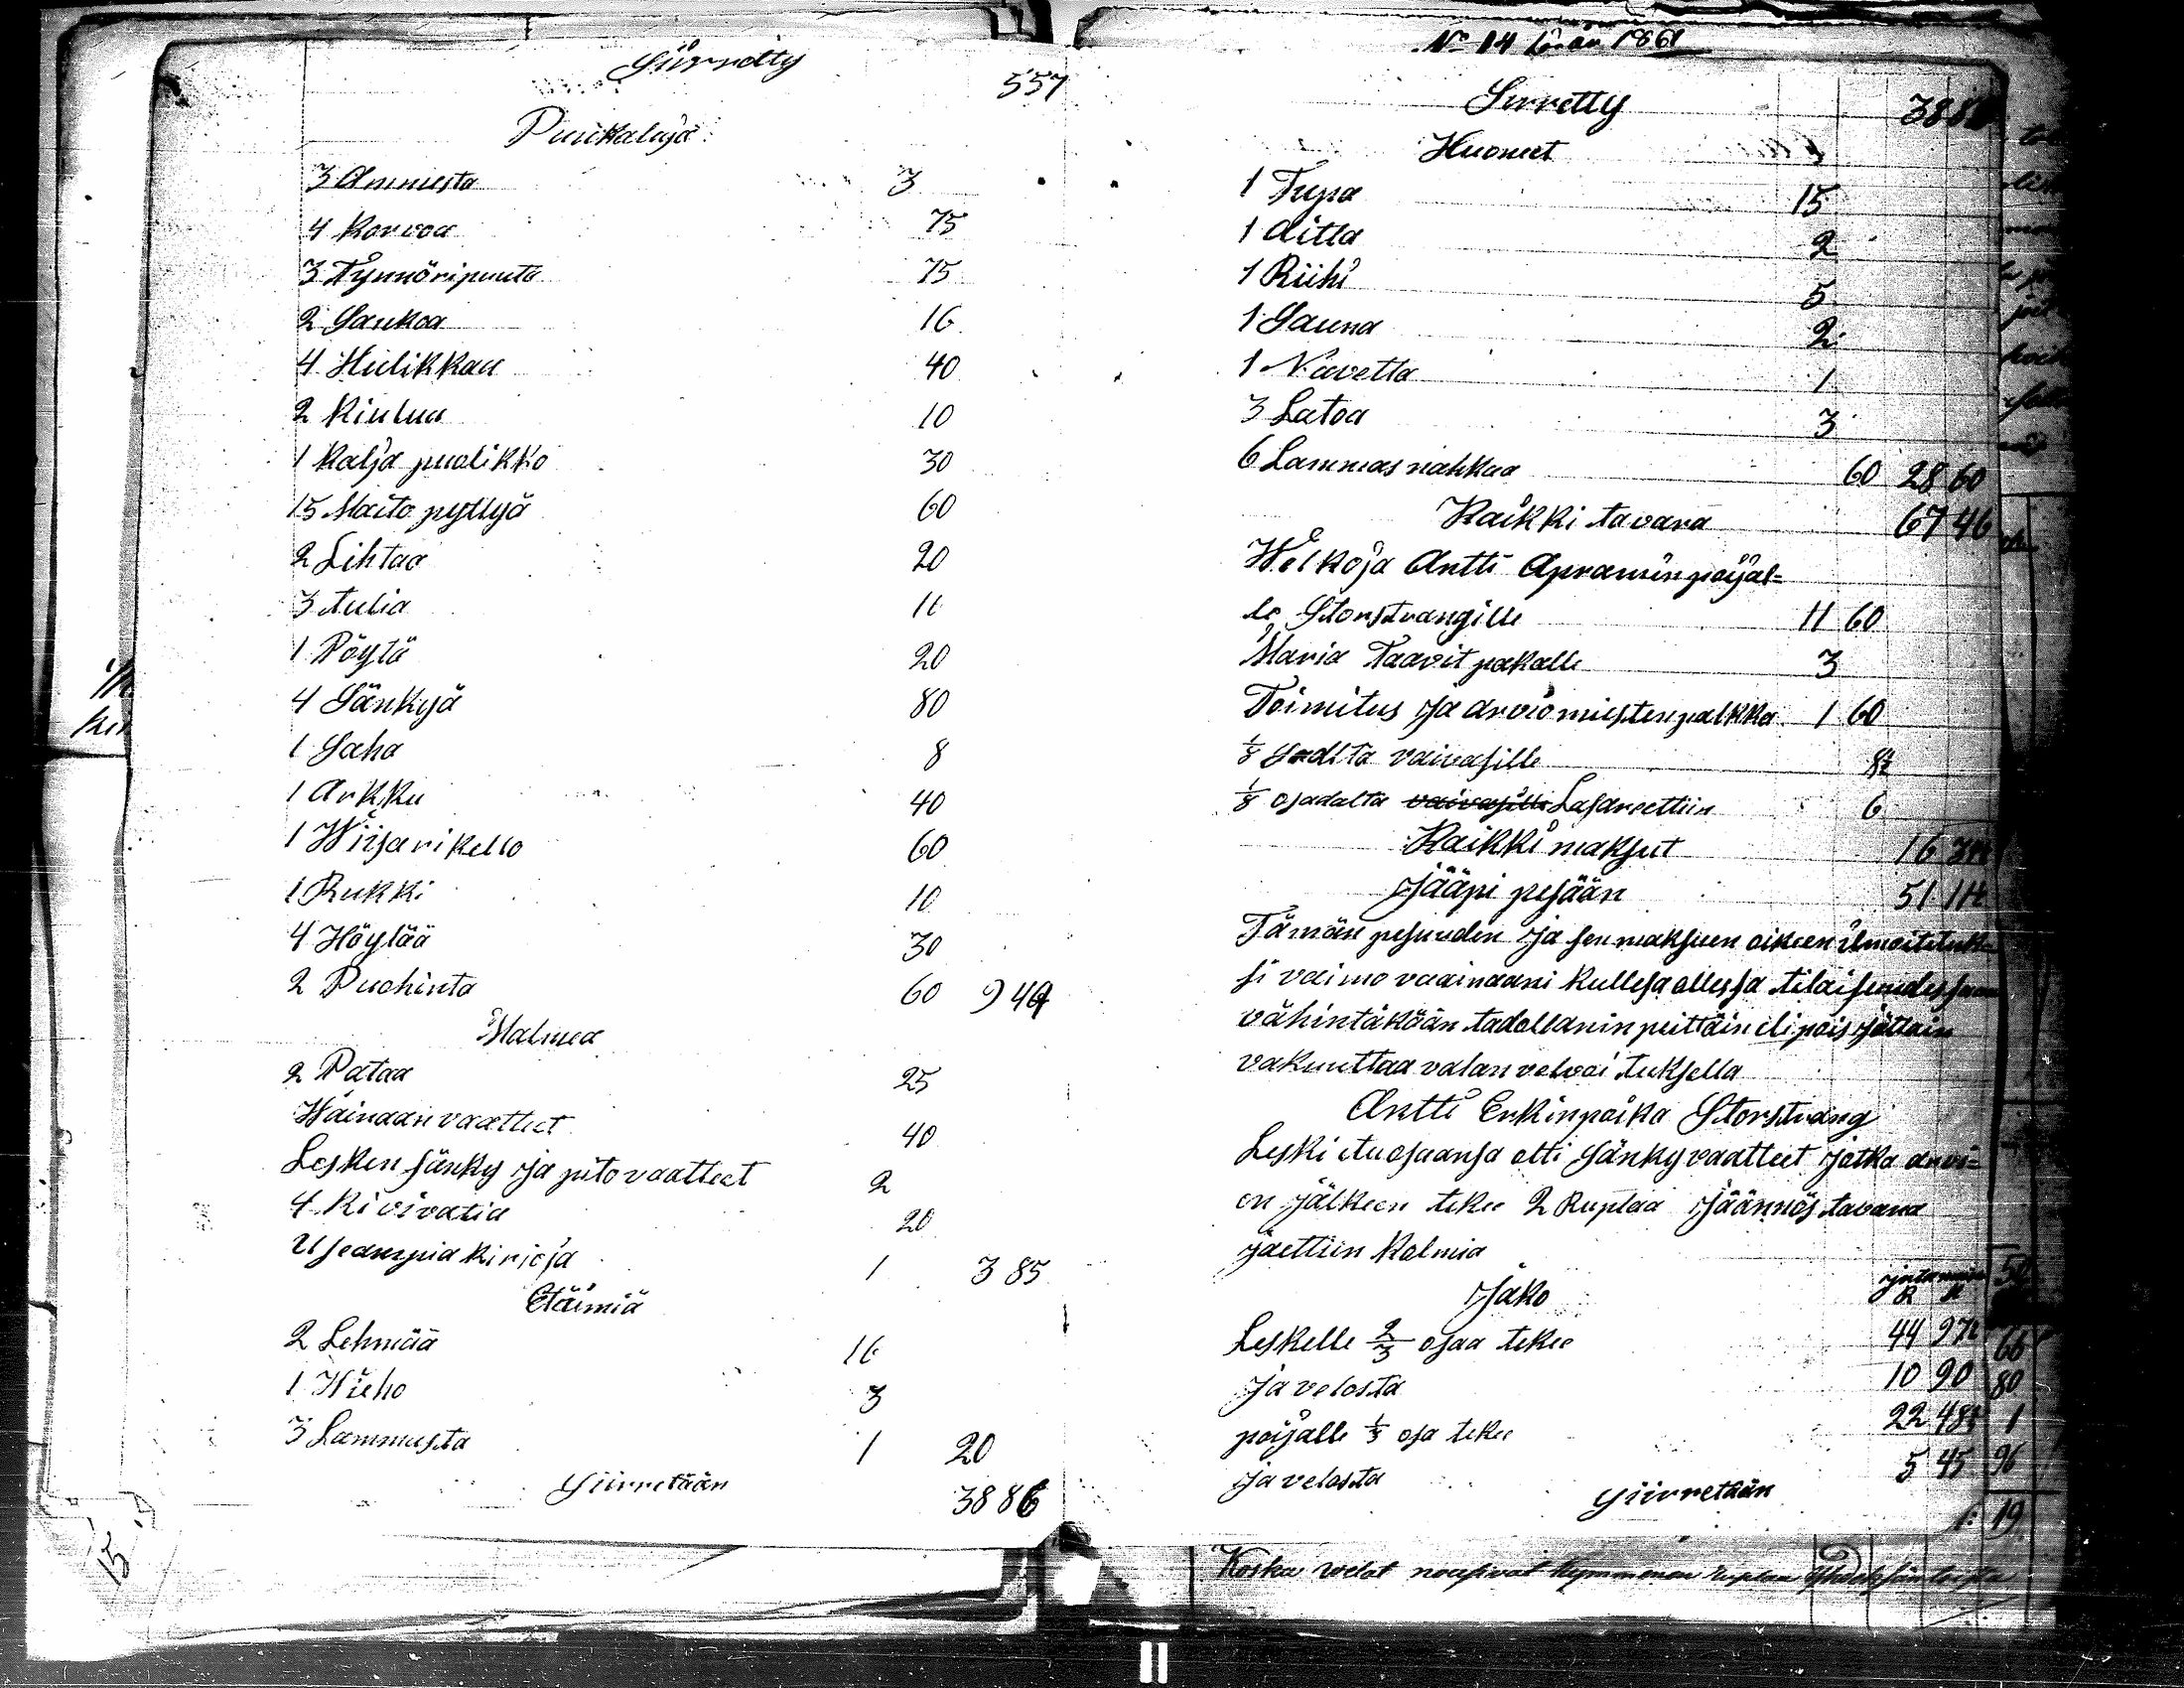 Siirretty
557
Puukaluja
3 Ammesta 3
4 Korvoa 75
3 Tynnöripuuta 75
2 Sankoa 16
4 Hulikkaa 40
2 Kiulua 10
1 Kalja puolikko 30
15 Maito pyttyä 60
2 Lihtaa 20
3 tulia
1 Pöytä 20
4 Sänkyä 80
1 Saha 8
1 Arkku 40
1 Wiisarikello 60
1 Rukki 10
4 Höylää 30
2 Puohinta 60 9 49
Malmea
2 Pataa 25
Wainaan vaatteet 40
Lesken sänky ja pito vaatteet 2
4 Kivivatia 20
Useampia kirjoja 1 3 85
Eläimiä
2 Lehmää 16
1 Hieho 3
3 Lammasta 1 20
Siirretään 38 86
15
No 14 för år 1861
Siirretty 3886
Huoneet
1 Tupa 15
1 Aitta 2
1 Riihi 5
1 Sauna 2
1 Navetta 1
3 Latoa 3
6 Lammas nahkaa 60 28 60
Kaikki tavara 67 46
Welkoja Antti Apramin pojal=
le Storstrangille 11 60
Maria Taavit pakalle 3
Toimitus ja arvio miesten palkka 1 60
1/8 vaivasille 8½
1/8 osadalta vaivasille Lasarettiin 6
Kaikki maksut 16 34½
Jääpi pesään 51 11½
Tämän pesuuden ja sen maksuen oikeen ilmoitetuk-
si vaimo vaainaani kullesa ollessa tilaisuudessaan
vähintäkään tadollanin peittäin eli pois jättäin
vakuuttaa valan velvoituksella
Antti Erkinpoika Storstrang
Leski etuosaansa otti Sänky vaatteet jotka arvi=
on jälkeen tekee 2 Ruplaa Jäännös tavara
jaettiin kolmia
Jako R K
Leskelle 2/3 osaa tekee 44 97½
ja velosta 10 90
pojalle 1/3 osa tekee 22 48½
ja velosta 5 45
Siirretään
Koska welat nousivat kymmenen ruplan